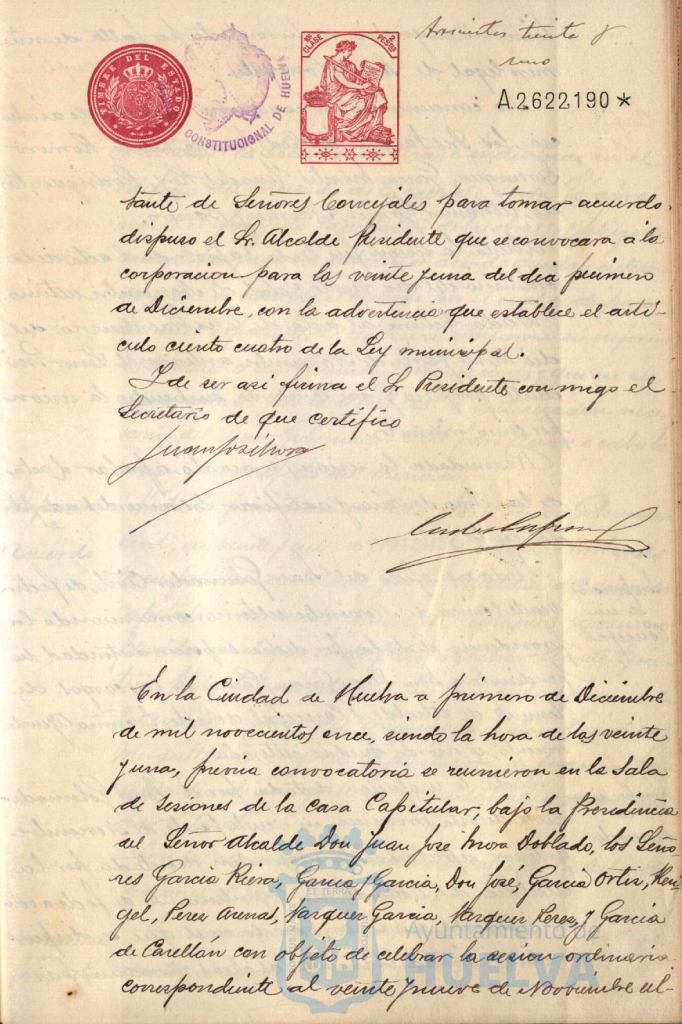 Trescientos treinta y
uno
TIMBRE DEL ESTADO
CONSTITUCIONAL DE HUELVA
CLASE
PESETAS
A.2.622,190 *
tante de Señores Concejales para tomar acuerdo,
dispuso el Sr. Alcalde Presidente que se convocara á la
corporacion para las veinte y una del dia primero
de Diciembre, con la advertencia que establece el artí-
culo ciento cuatro de la Ley municipal.
Y de ser asi firma el Sr Presidente conmigo el
Secretario de que certifico
Juan José Mora
En la Ciudad de Huelva a primero de Diciembre
de mil novecientos once, siendo la hora de las veinte
y una, previa convocatoria se reunieron en la Sala
de sesiones de la casa Capitular, bajo la Presidencia
del Señor Alcalde Don Juan José Mora Doblado, los Seño-
res Garcia Riera, Garcia y Garcia, Don José, Garcia Ortiz, Ren-
gel, Perez Arenas, Vazquez Garcia, Vazquez Perez, y Garcia
de Carellán con objeto de celebrar la sesion ordinaria
correspondiente al veinte y nueve de Noviembre úl-
Ayuntamiento de
HUELVA